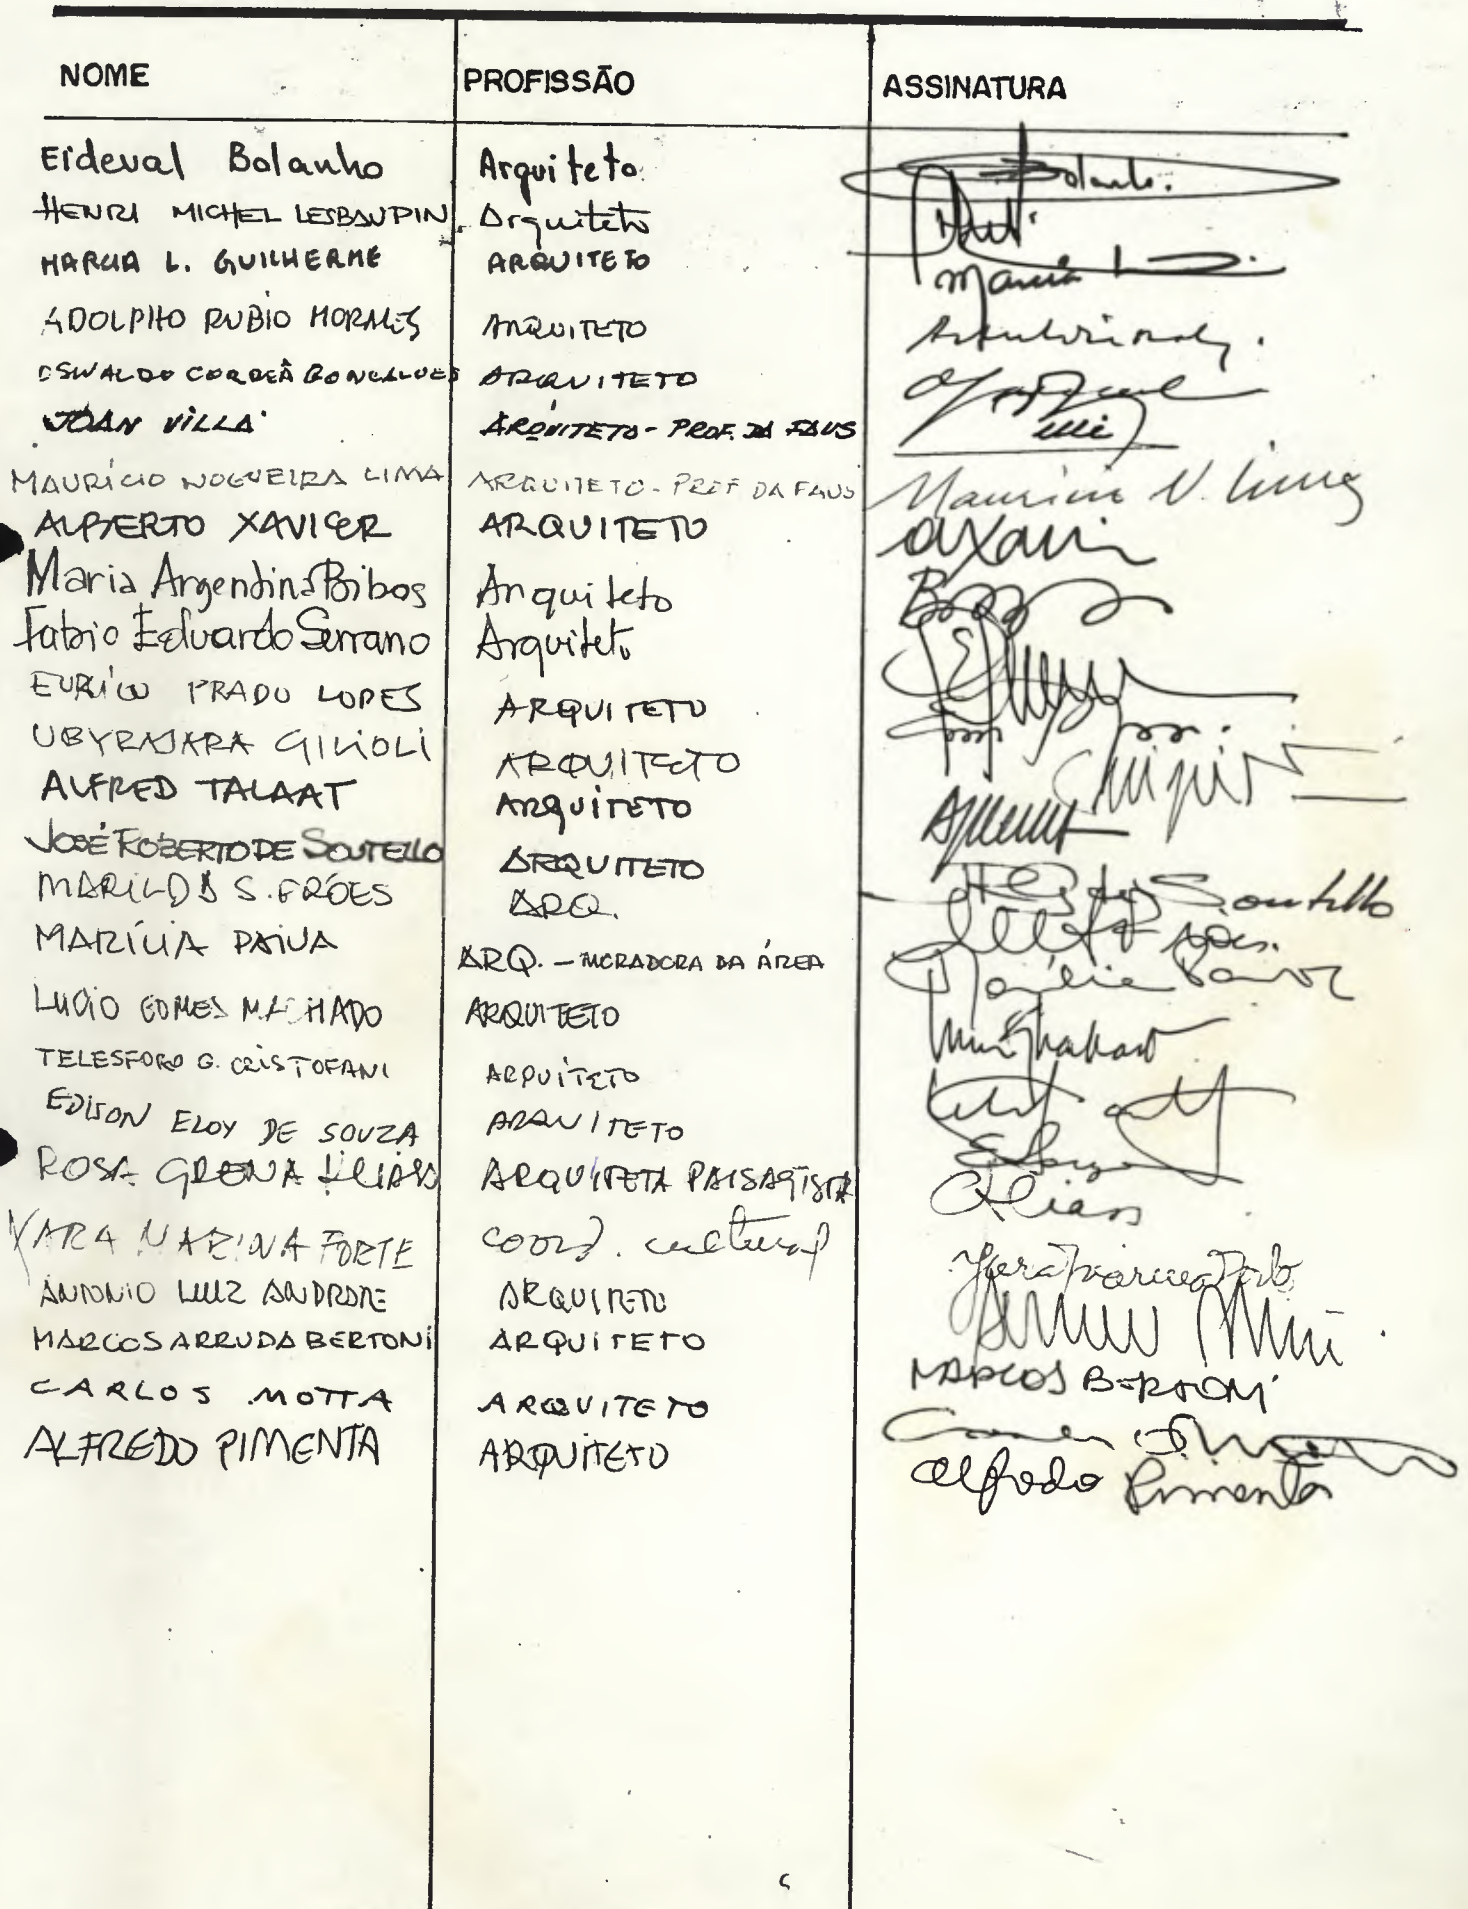 NOME PROFISSÃO ASSINATURA
Eideval Bolanho Arquiteto Bolanho.
HENRI MICHEL LESBAUPIN. Arquiteto Henri
MARCIA L. GUILHERME ARQUITETO Marcia L
ADOLPHO RUBIO MORALES ARQUITETO
OSWALDO CORRÊA GONÇALVES ARQUITETO
JOAN VILLÀ ARQUITETO - PROF. DA FAUS
MAURÍCIO NOGUEIRA LIMA ARQUITETO - PROF DA FAUS Maurício N. Lima
ALBERTO XAVIER ARQUITETO AXavier
Maria Argentina Bibos Arquiteto
Fabio Eduardo Serrano Arquiteto
EURICO PRADO LOPES ARQUITETO
UBYRAJARA GILIOLI ARQUITETO
ALFRED TALAAT ARQUITETO
JOSÉ ROBERTO DE SOUTELLO ARQUITETO Soutello
MARILDA S. FRÓES ARQ.
MARÍLIA PAIVA ARQ. - MORADORA DA ÁREA Marília Paiva
LUCIO GOMES MACHADO ARQUITETO
TELESFORO G. CRISTOFANI ARQUITETO
EDISON ELOY DE SOUZA ARQUITETO
ROSA GRENA KLIASS ARQUITETA PAISAGISTA RKliass
YARA MARINA FORTE coord. cultural Yara Marina Forte
ANTONIO LUIZ ANDRADE ARQUITETO
MARCOS ARRUDA BERTONI ARQUITETO MARCOS BERTONI
CARLOS MOTTA ARQUITETO
ALFREDO PIMENTA ARQUITETO Alfredo Pimenta